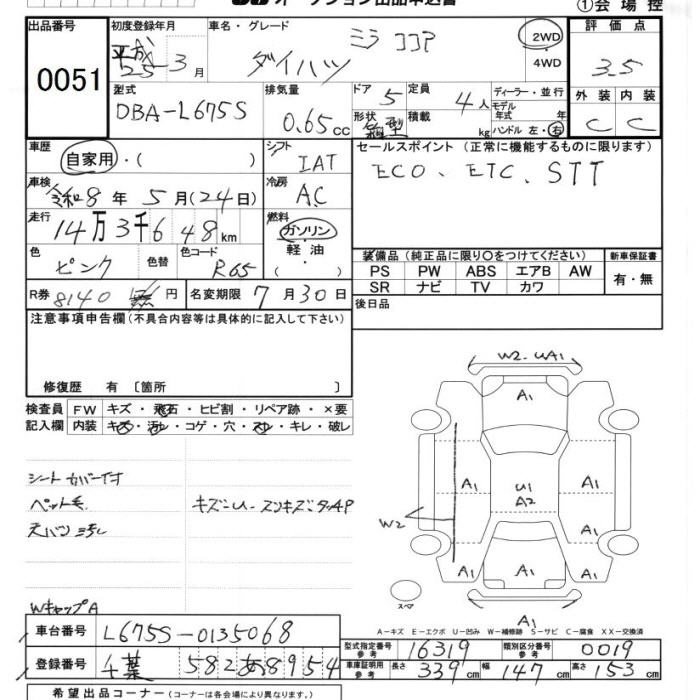 オークション出品申込書
①会場控
出品番号 0051
初度登録年月 平成 25-3月
車名・グレード ダイハツ ミラココア
2WD・4WD
評価点 3.5
外装 C 内装 C
型式 DBA-L675S
排気量 0.65cc
ドア 5 定員 4人
形状 箱型 積載 kg
ディーラー・並行
モデル年式 年
ハンドル 左・右
車歴 自家用・( )
シフト IAT
セールスポイント (正常に機能するものに限ります)
ECO、ETC、STT
車検 令和8年 5月(24日)
冷房 AC
走行 14万3千648km
燃料 ガソリン・軽油・( )
色 ピンク 色替 色コード R65
装備品(純正品に限り○をつけてください)
PS PW ABS エアB AW
SR ナビ TV カワ
新車保証書 有・無
R券 8140円 名変期限 7月30日
後日品
注意事項申告欄(不具合内容等は具体的に記入して下さい)
修復歴 有 [箇所 ]
検査員記入欄
FW キズ・飛石・ヒビ割・リペア跡・×要
内装 キズ・汚レ・コゲ・穴・スレ・キレ・破レ
シートカバー付
ペット毛 キズ
天バリ
WキャップA
W2 UA1
A1
A1 U1 A2 A1
W2
A1 A1
A1 A1 A1
スペア
A1
A-キズ E-エクボ U-凹み W-補修跡 S-サビ C-腐食 XX-交換済
車台番号 L675S-0135068
型式指定番号参考 16319 類別区分番号参考 0019
登録番号 千葉 582 あ 8954
車庫証明用参考 長さ 339cm 幅 147cm 高さ 153cm
希望出品コーナー(コーナーは各会場により異なります。)